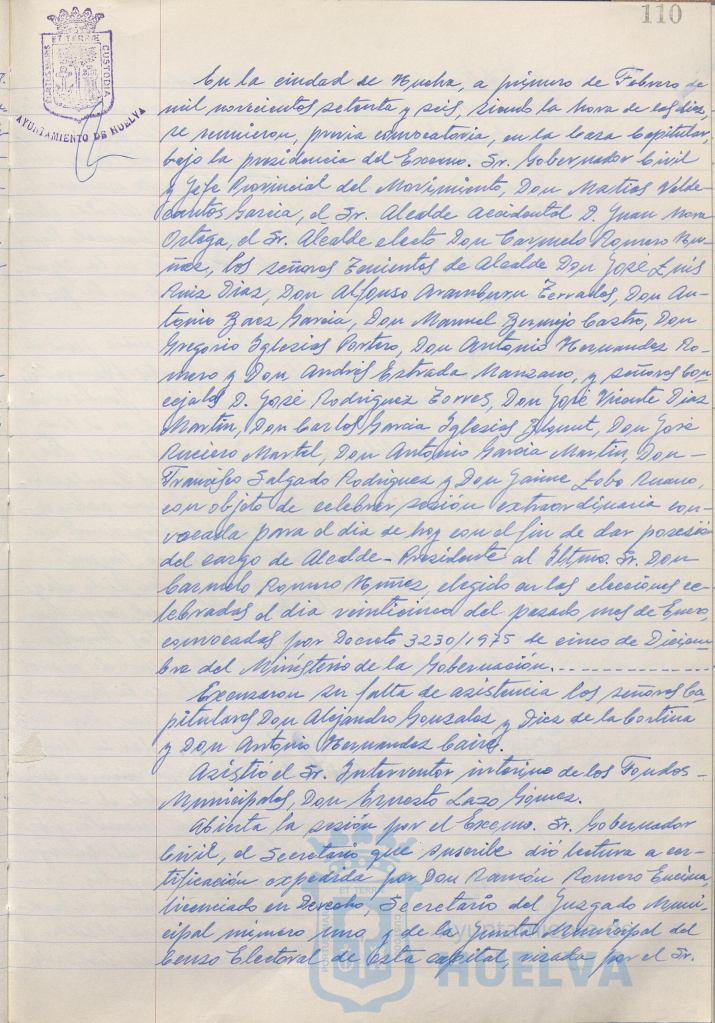 110
PORTUS MARIS ET TERRAE CUSTODIA
AYUNTAMIENTO DE HUELVA
En la ciudad de Huelva, a primero de Febrero de
mil novecientos setenta y seis, siendo la hora de las diez,
se reunieron, previa convocatoria, en la Casa Capitular,
bajo la presidencia del Excmo. Sr. Gobernador Civil
y Jefe Provincial del Movimiento, Don Matías Valde-
cantos García, el Sr. Alcalde accidental D. Juan Mora
Ortega, el Sr. Alcalde electo Don Carmelo Romero Nu-
ñez, los señores Tenientes de Alcalde Don José Luis
Ruiz Díaz, Don Alfonso Aramburu Terrades, Don An-
tonio Baez García, Don Manuel Bermejo Castro, Don
Gregorio Iglesias Portero, Don Antonio Hernandez Ro-
mero y Don Andrés Estrada Manzano, y señores Con-
cejales D. José Rodríguez Torres, Don José Vicente Diaz
Martín, Don Carlos García Iglesias, Don José
Martel, Don Antonio García Martín, Don-
Francisco Salgado Rodríguez y Don Jaime Lobo Ruano,
con objeto de celebrar sesión extraordinaria con-
vocada para el día de hoy con el fin de dar posesión
del cargo de Alcalde-Presidente al Iltmo. Sr. Don
Carmelo Romero Núñez, elegido en las elecciones ce-
lebradas el día veinticinco del pasado mes de Enero,
convocadas por Decreto 3230/1975 de cinco de Diciem-
bre del Ministerio de la Gobernación.
Excusaron su falta de asistencia los señores Ca-
pitulares Don Alejandro Gonzalez y Diez de la Cortina
y Don Antonio Hernandez.
Asistió el Sr. Interventor interino de los Fondos-
Municipales, Don Ernesto Lazo Gómez.
Abierta la sesión por el Excmo. Sr. Gobernador
Civil, el Secretario que suscribe dió lectura a cer-
tificación expedida por Don Ramón Romero Encina,
licenciado en Derecho, Secretario del Juzgado Muni-
cipal número uno y de la Junta Municipal del
Censo Electoral de esta capital, visada por el Sr.
Ayuntamiento
HUELVA